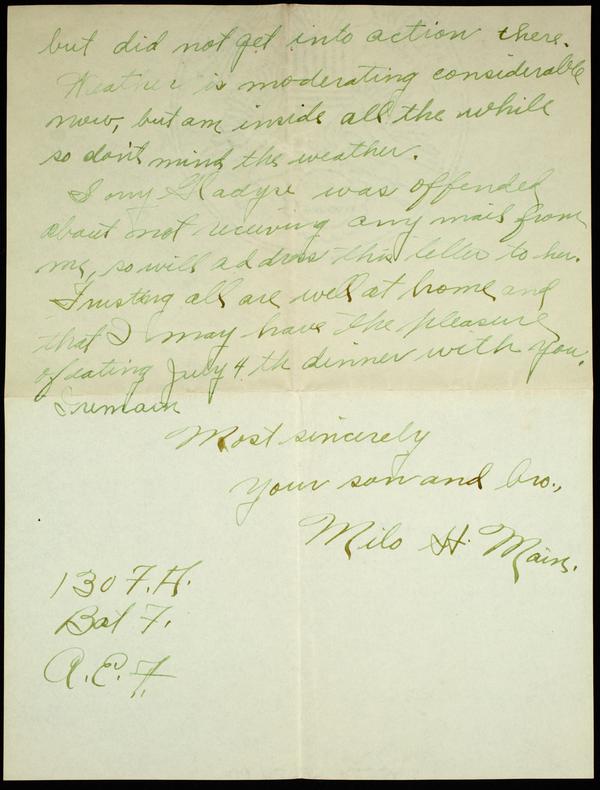 but did not get into action there.
Weather is moderating considerable
now, but am inside all the while
so don't mind the weather.
Gladyse was offended
about not receiving any mail from
me, so will address this letter to her.
Trusting all are well at home and
that I may have the pleasure
of eating July 4th dinner with you.
I remain
Most sincerely
Your son and bro.,
Milo H. Main.
130 F.H.
Bat F.
A.E.F.